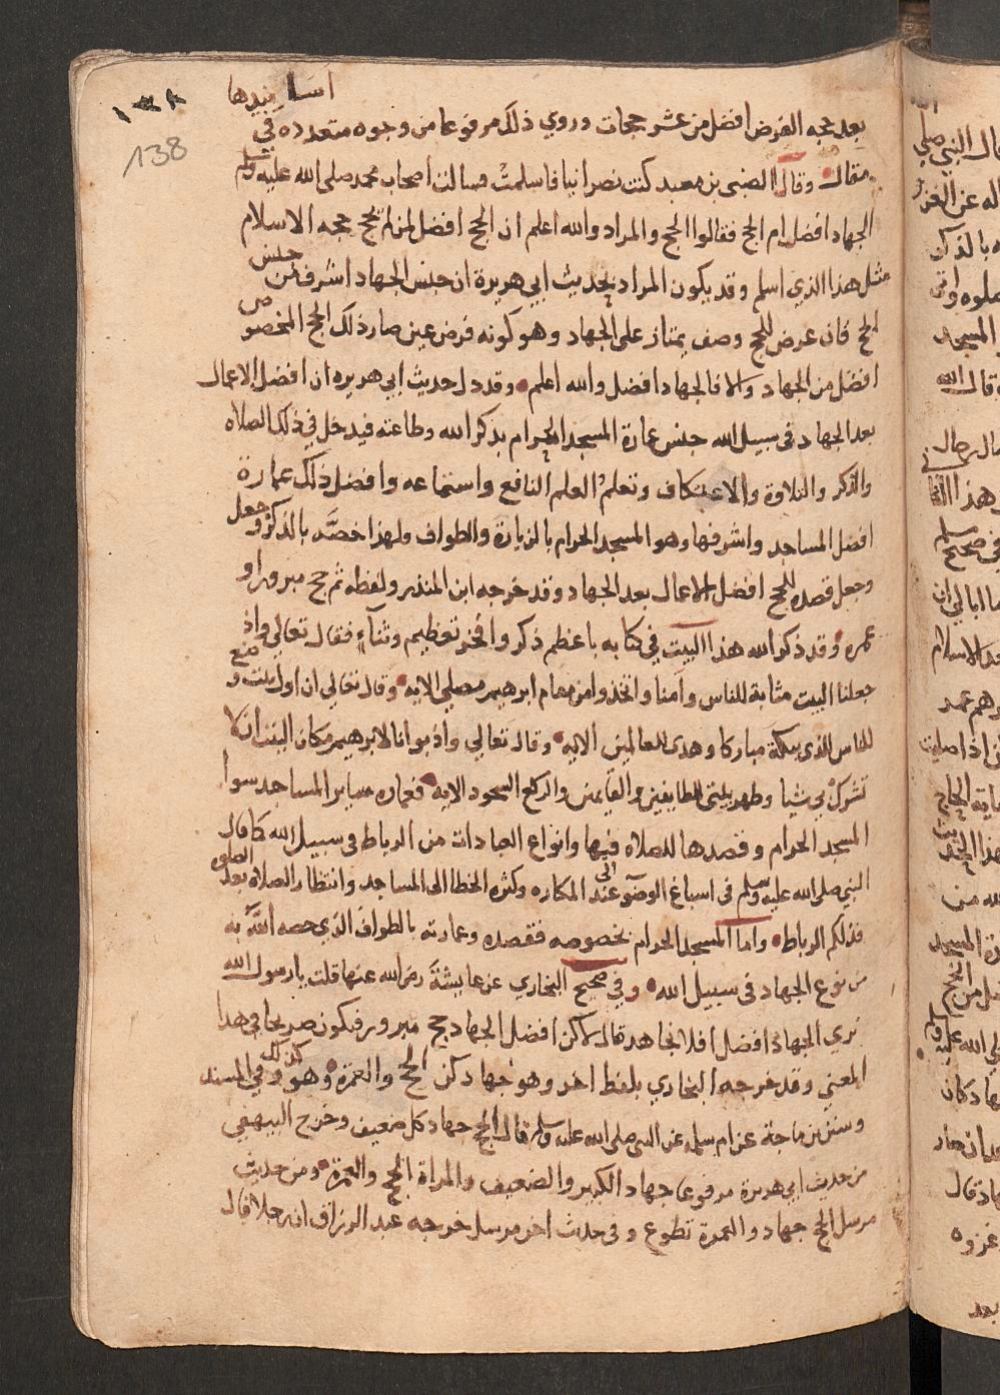 ١٣٨
138
اسانيدها
بعد حجه الفرض افضل من عشر حجات وروي ذلك مرفوعا من وجوه متعدده في
مقال وقال الضبي بن معبد كنت نصرانيا فاسلمت فسالت اصحاب محمد صلى الله عليه وسلم
الجهاد افضل ام الحج فقالوا الحج والمراد والله اعلم ان الحج افضل لمن لم يحج حجه الاسلام
مثل هذا الذي اسلم وقد يكون المراد بحديث ابي هريرة ان جنس الجهاد اشرف من جنس
الحج فان عرض للحج وصف يمتاز على الجهاد وهو كونه فرض عين صار ذلك الحج المخصوص
افضل من الجهاد والا فالجهاد افضل والله اعلم وقد دل حديث ابي هريره ان افضل الاعمال
بعد الجهاد في سبيل الله جنس عمارة المسجد الحرام بذكر الله وطاعته فيدخل في ذلك الصلاه
والذكر والتلاوة والاعتكاف وتعلم العلم النافع واستماعه وافضل ذلك عمارة
افضل المساجد واشرفها وهو المسجد الحرام بالزيارة والطواف ولهذا خصه بالذكر وجعل
وجعل قصده للحج افضل الاعمال بعد الجهاد وقد خرجه ابن المنذر ولفظه ثم حج مبرور او
عمره وقد ذكر الله هذا البيت في كتابه باعظم ذكر وافخر تعظيم وثناء فقال تعالى واذ
جعلنا البيت مثابة للناس وامنا واتخذوا من مقام ابرهيم مصلى الايه وقال تعالى ان اول بيت وضع
للناس للذي ببكة مباركا وهدى للعالمين الايه وقال تعالى واذ بوانا لابرهيم مكان البيت ان لا
تشرك بي شيا وطهر بيتي للطايفين والقايمين والركع السجود الايه فعماره ساير المساجد سوا
المسجد الحرام وقصدها للصلاه فيها وانواع العبادات من الرباط في سبيل الله كما قال
النبي صلى الله عليه وسلم في اسباغ الوضو عند المكاره وكثره الخطا الى المساجد وانتظار الصلاه بعد الصلوه
فذلكم الرباط واما المسجد الحرام بخصوصه فقصده وعمارته بالطواف الذي خصه الله به
من نوع الجهاد في سبيل الله وفي صحيح البخاري عن عايشة رضي الله عنها قلت يا رسول الله
نري الجهاد افضل افلا نجاهد قال لاكن افضل الجهاد حج مبرور فيكون صريحا في هذا
المعني وقد خرجه البخاري بلفظ اخر وهو جهادكن الحج والعمرة وهو كذلك وفي المسند
وسنن بن ماجة عن ام سلمه عن النبي صلى الله عليه وسلم قال الحج جهاد كل ضعيف وخرج البيهقي
من حديث ابي هريرة مرفوعا جهاد الكبير والضعيف والمراة الحج والعمرة ومن حديث
مرسل الحج جهاد والعمرة تطوع وفي حديث اخر مرسل خرجه عبد الرزاق ان رجلا قال